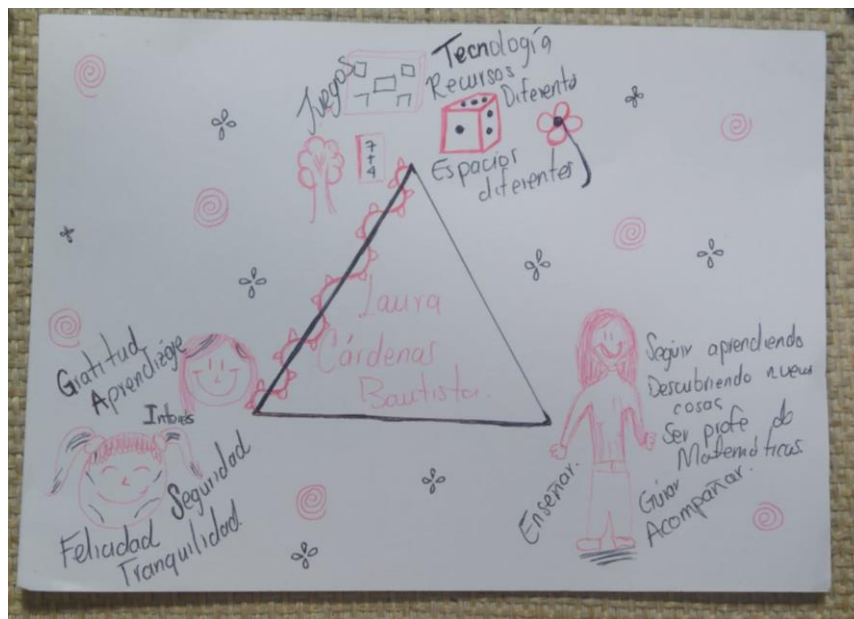 Juegos
Tecnología
Recursos
Diferente
7+4
Espacios
diferentes
Laura
Cárdenas
Bautista.
Gratitud
Aprendizaje
Interés
Seguridad
Felicidad
Tranquilidad
Seguir aprendiendo
Descubriendo nuevas
cosas
Ser profe de
Matemáticas
Guiar
Acompañar.
Enseñar.